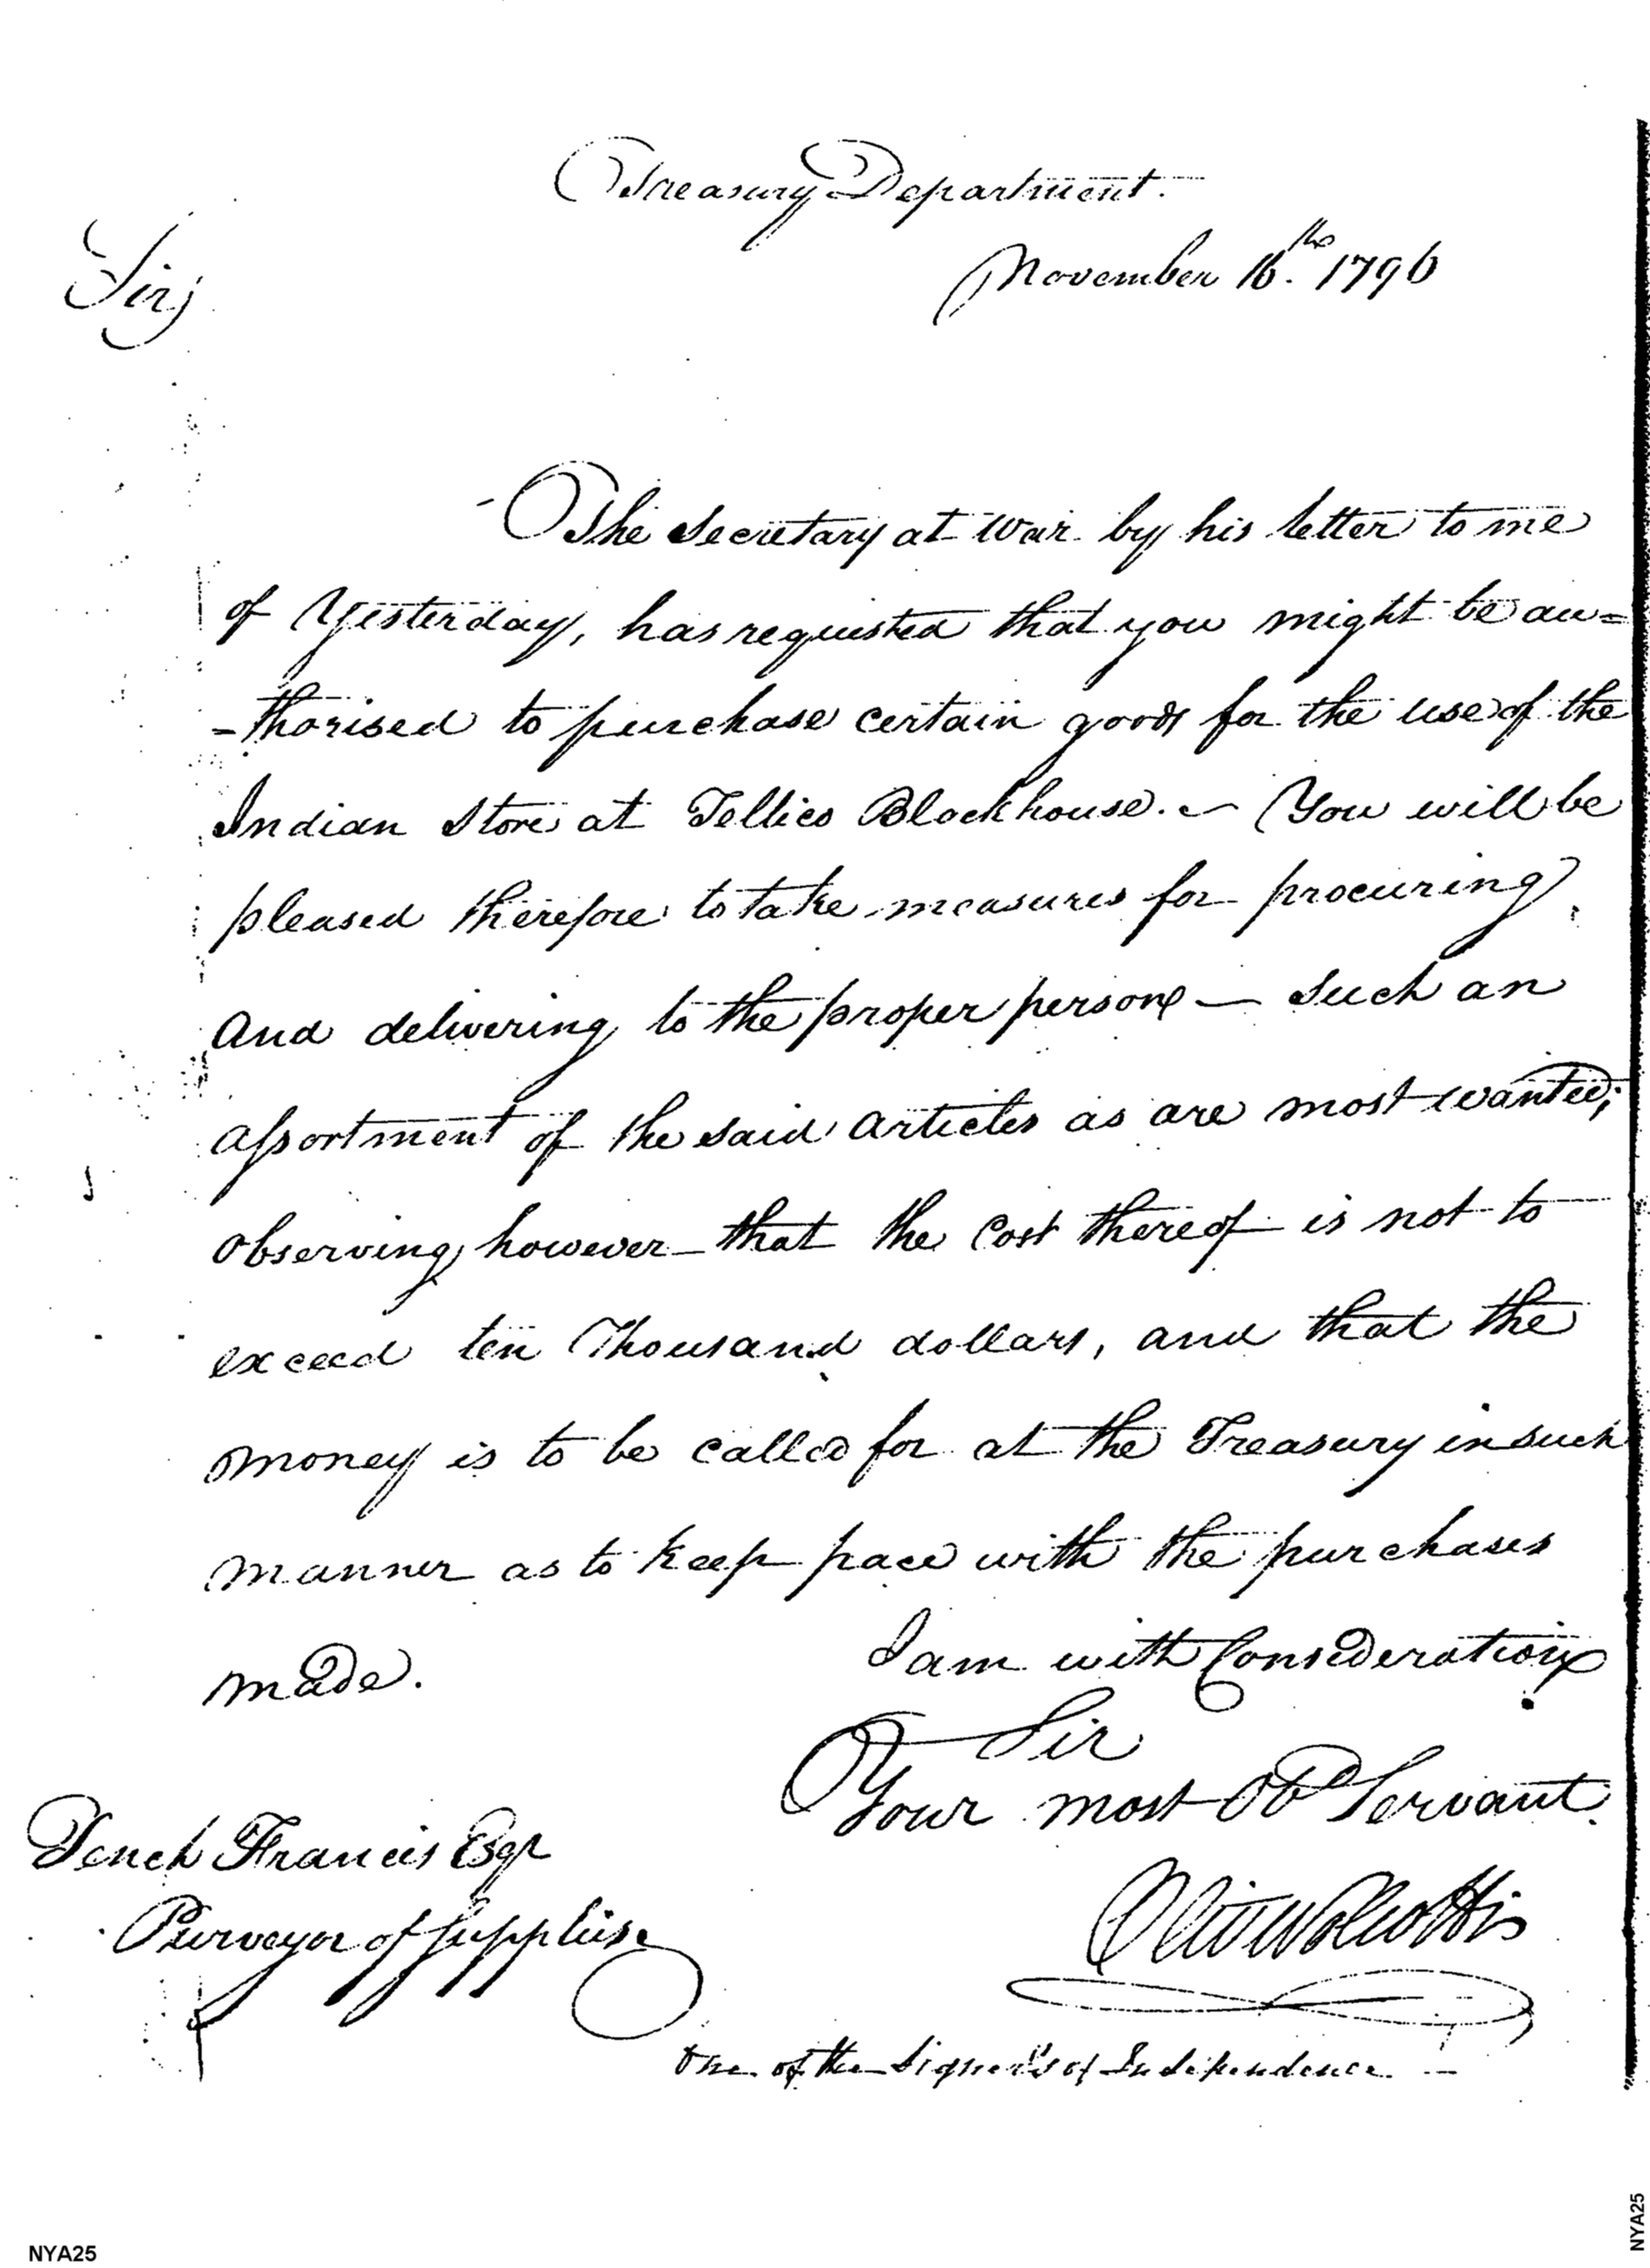 Treasury Department.
November 16.th 1796
Sir,
The Secretary at War by his letter to me
of Yesterday, has requested that you might be au=
-thorised to purchase certain goods for the use of the
Indian Store at Tellico Blockhouse. — You will be
pleased therefore to take measures for procuring
and delivering to the proper persons — such an
assortment of the said articles as are most wanted;
observing however — that the Cost thereof is not to
exceed ten Thousand dollars, and that the
money is to be called for at the Treasury in such
manner as to keep pace with the purchases
made.
I am with Consideration
Sir
Your most Obt Servant.
Tench Francis Esqr
Purveyor of Supplies.
Oliv Wolcott
One of the Signers of Independence. —
NYA25
NYA25